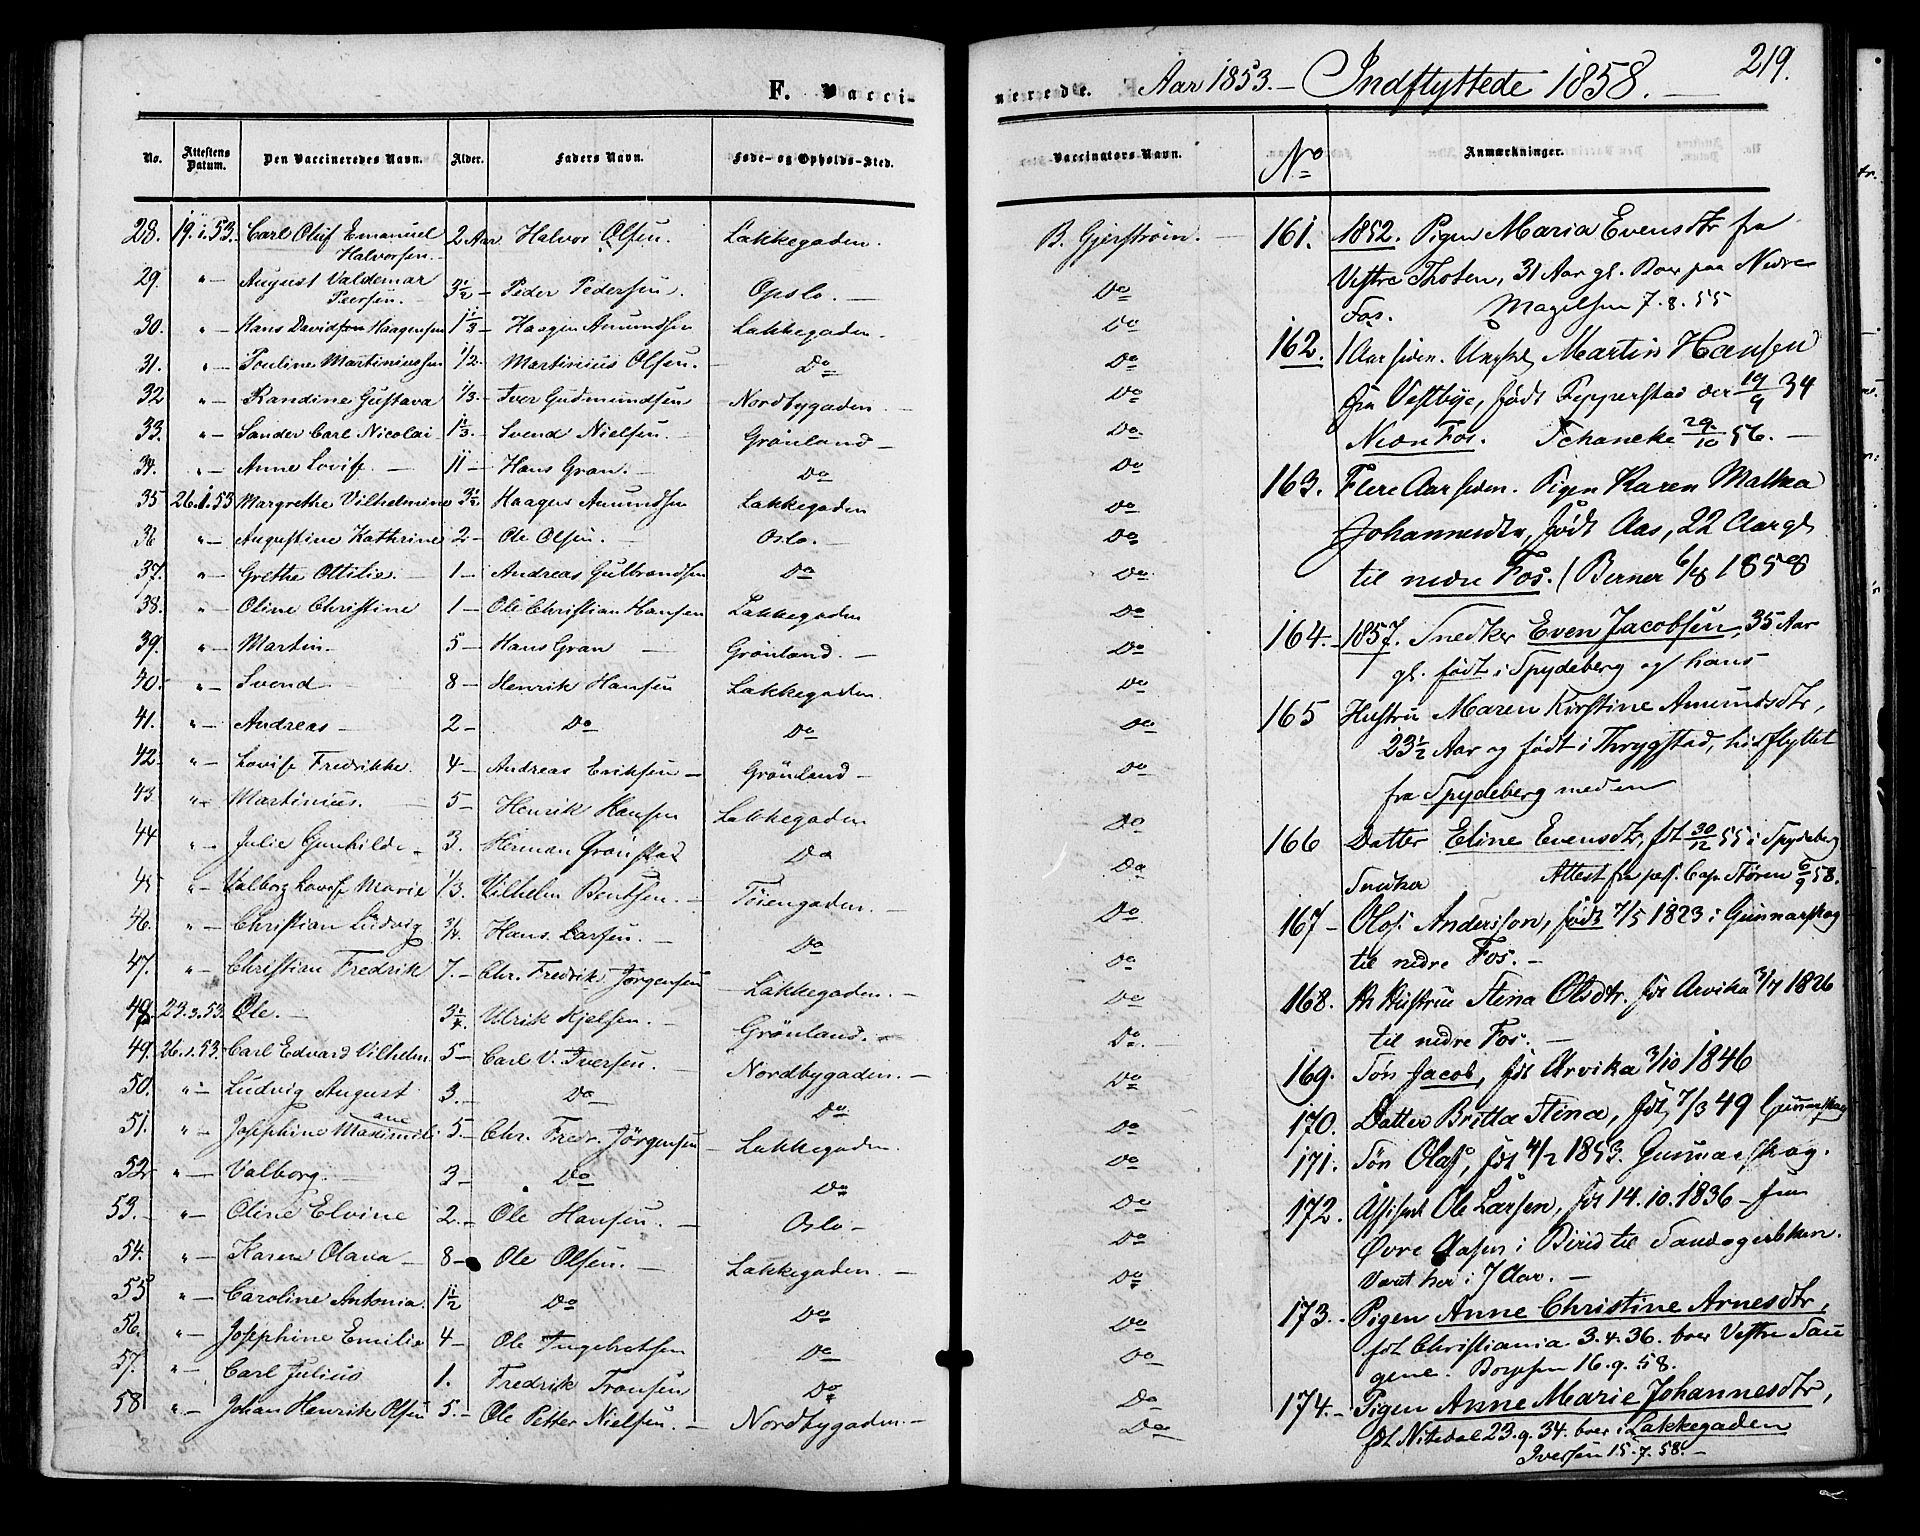 F. Vacci-
No. Attestens Datum. Den Vaccineredes Navn. Alder. Faders Navn. Føde- og Opholds-Sted.
28. 19.1.53. Carl Oluf Emanuel Halvorsen. 2 Aar Halvor Olsen. Lakkegaden.
29. " August Valdemar Peersen. 3½ Peder Pedersen. Opslo.
30. " Hans Davidsen Haagensen 1⅓ Haagen Amundsen Lakkegaden.
31. " Pouline Martiniussen ½ Martinius Olsen. Do
32 " Randine Gustava ⅓ Iver Gudmundsen Nordbygaden.
33. " Sander Carl Nicolai 1⅓ Svend Nielsen. Grønland
34. " Anne Lovise. 11 Hans Gran. Do
35 26.1.53 Margrethe Vilhelmine 3½ Haagen Amundsen Lakkegaden
36 " Augustine Kathrine 2 Ole Olsen. Oslo.
37. " Grethe Ottilie. 1 Andreas Gulbrandsen Do
38. " Oline Christine 1 Ole Christian Hansen Lakkegaden
39. " Martin. 5 Hans Gran Grønland.
40. " Svend 8 Henrik Hansen Lakkegaden.
41. " Andreas 2 Do Do
42. " Lovise Fredrikke. 4 Andreas Eriksen Grönland
43. " Martinius. 5 Henrik Hansen Lakkegaden
44 " Julie Gunhilde 3. Herman Grønstad Do
45 " Valborg Lovise Marie ⅓ Vilhelm Bentsen. Töiengaden.
46. " Christian Ludvig ¾ Hans Larsen. Do
47. " Christian Fredrik 7. Chr. Fredrik Jörgensen Lakkegaden.
48. 23.3.53. Ole. 3¾ Ulrik Kjelsen. Grönland.
49. 26.1.53. Carl Edvard Vilhelm. 5 Carl V. Iversen. Nordbygaden.
50. " Ludvig August 3. Do Do
51. " Josephine Maximiliane 5 Chr. Fredr. Jörgensen Lakkegaden.
52 " Valborg. 3 Do Do
53. " Oline Elvine 2. Ole Hansen. Oslo
54. " Karen Olava 8 Ole Olsen. Lakkegaden.
55 " Caroline Antonia. 1½ Do Do
56. " Josephine Emilie 4 Ole Ingebretsen Do
57. " Carl Julius 1. Fredrik Tronsen Do
58 " Johan Henrik Olsen 5. Ole Petter Nielsen. Nordbygaden.
nerede. Aar 1853. — Indflyttede 1858. — 219.
Vaccinators Navn. No Anmærkninger.
B. Gjerström.
Do
161. 1852. Pigen Maria Evensdtr fra
Vestre Thoten, 31 Aar gl. Boer paa Nedre
Fos. Magelsen 7.8.55
162. 1 Aar siden. Ungkl Martin Hansen
fra Vestbye, født Pepperstad den 19/9 34
Nedre Fos. Schaneke 29/10 56.
163. Flere Aar siden. Pigen Karen Mathea
Johannesdtr, født Aas, 22 Aar gl
til nedre Fos. (Berner 6/8 1858
164. 1857. Snedker Even Jacobsen, 35 Aar
gl. født i Spydeberg og hans
165 Hustru Maren Kirstine Amundsdtr,
23½ Aar og født i Thrygstad, hidflyttet
fra Spydeberg med en
166 Datter Eline Evensdtr, fdt 30/12 55 i Spydeberg
Attest fra pers. Cap. Stören 6/9 58.
167 Olof Andersson, født 7/5 1823 i Gunnarskog
til nedre Fos.
168. Hustrue Stina Olsdtr. fdt Arvika 3/7 1826
til nedre Fos.
169. Sön Jacob, fdt Arvika 3/10 1846
170. Datter Britta Stina, fdt 7/3 49 Gunnarskog
171. Sön Olaf, fdt 4/2 1853. Gunnarskog.
172. Ole Larsen, fdt 14.10.1836 fra
Øvre Aasen i Birid til
Været her i 7 Aar.
173. Pigen Anne Christine Arnesdtr,
fdt Christiania 3.4.36. boer Vestre Sau
gene. 16.9.58.
174. Pigen Anne Marie Johannesdtr,
fdt Nitedal 23.9.34. boer i Lakkegaden
Iversen 15.7.58.